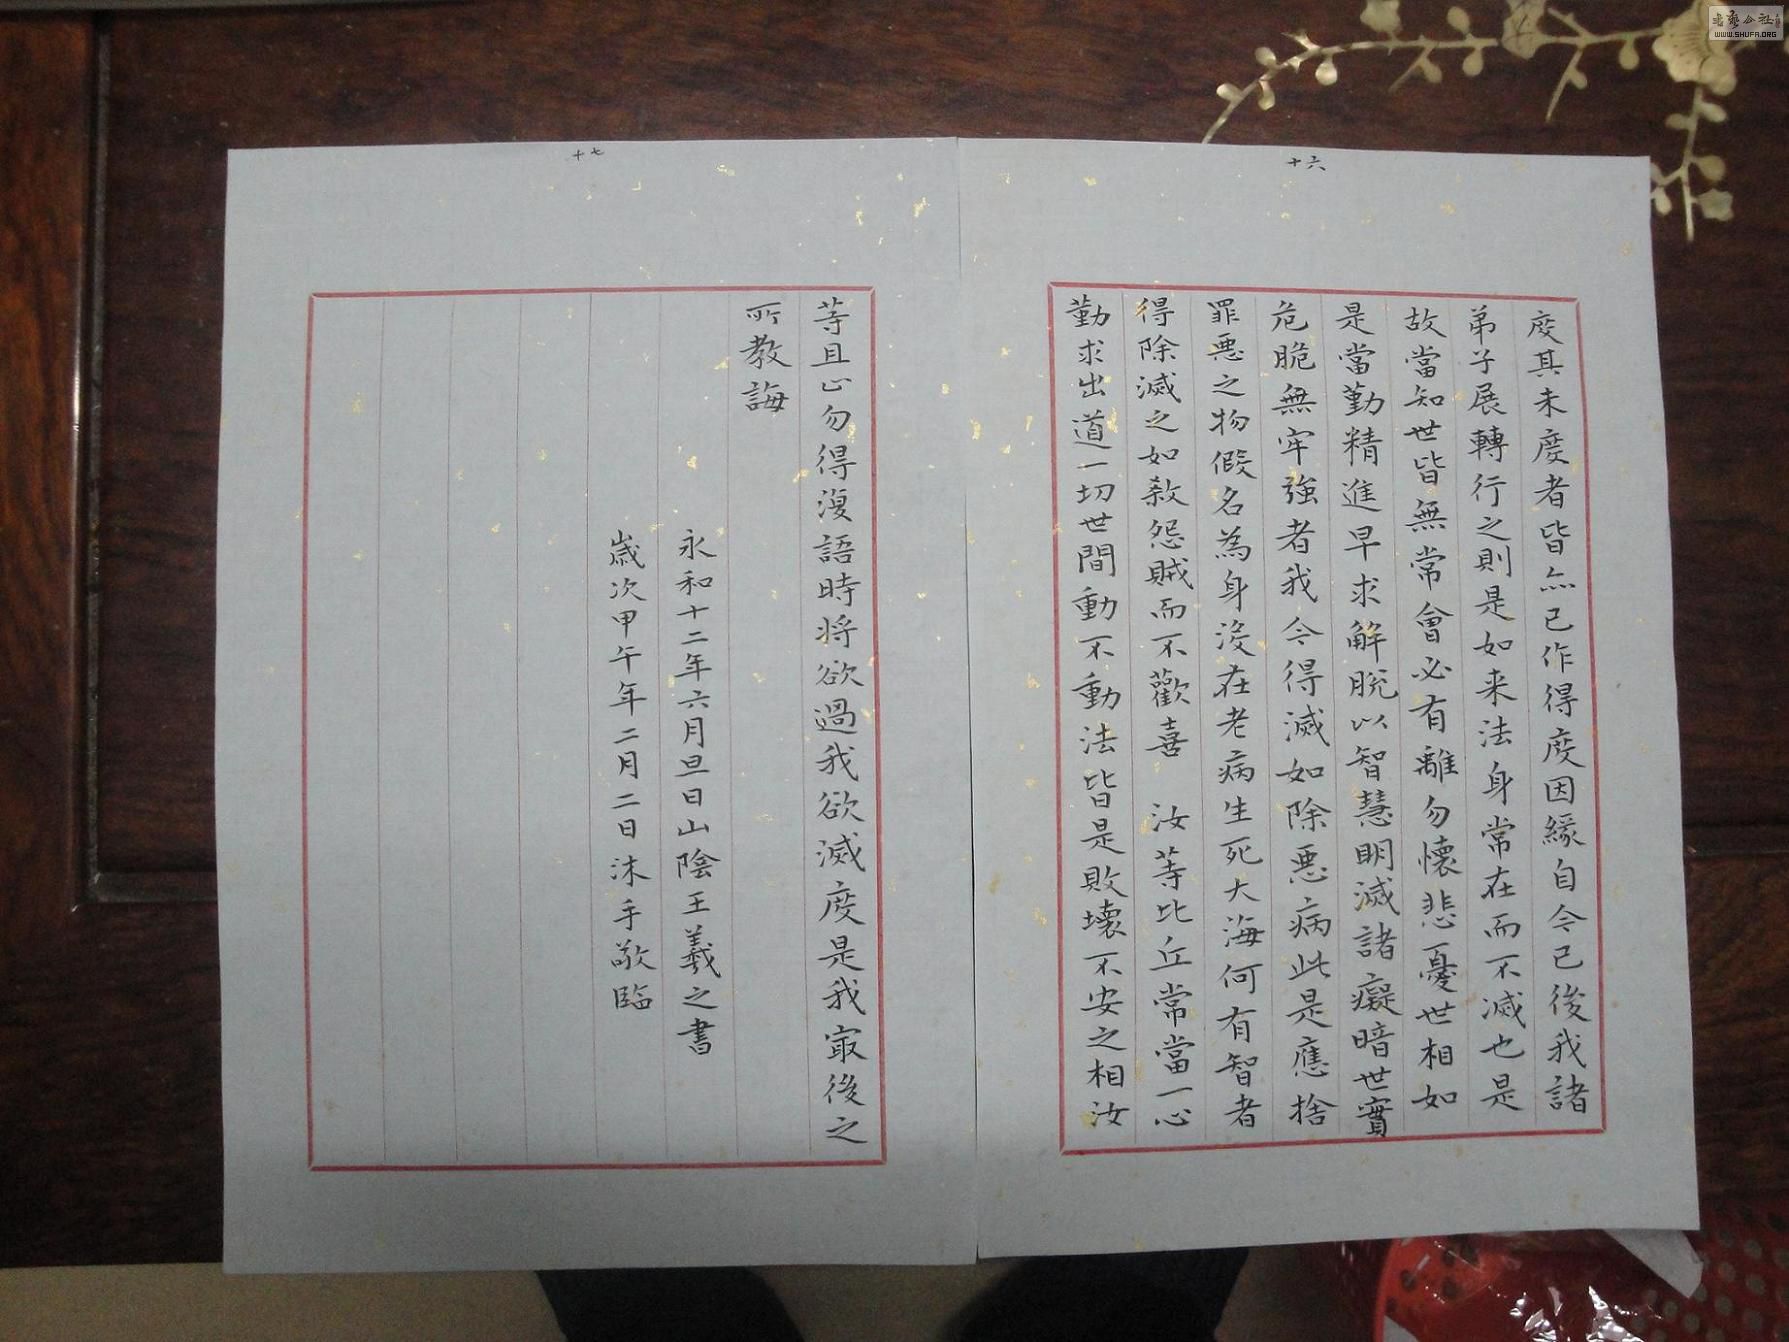 十六
度其未度者皆亦已作得度因緣自今已後我諸
弟子展轉行之則是如来法身常在而不滅也是
故當知世皆無常會必有離勿懷悲憂世相如
是當勤精進早求解脫以智慧明滅諸癡暗世實
危脆無牢強者我今得滅如除惡病此是應捨
罪惡之物假名為身沒在老病生死大海何有智者
得除滅之如殺怨賊而不歡喜 汝等比丘常當一心
勤求出道一切世間動不動法皆是敗壞不安之相汝
十七
等且止勿得復語時將欲過我欲滅度是我最後之
所教誨
永和十二年六月旦日山陰王羲之書
歲次甲午年二月二日沐手敬臨
書藝公社
WWW.SHUFA.ORG